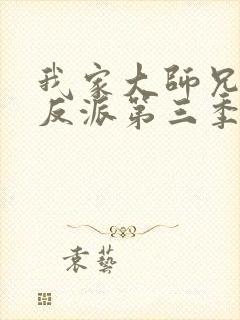 我家大師兄
反派第三季
袁藝